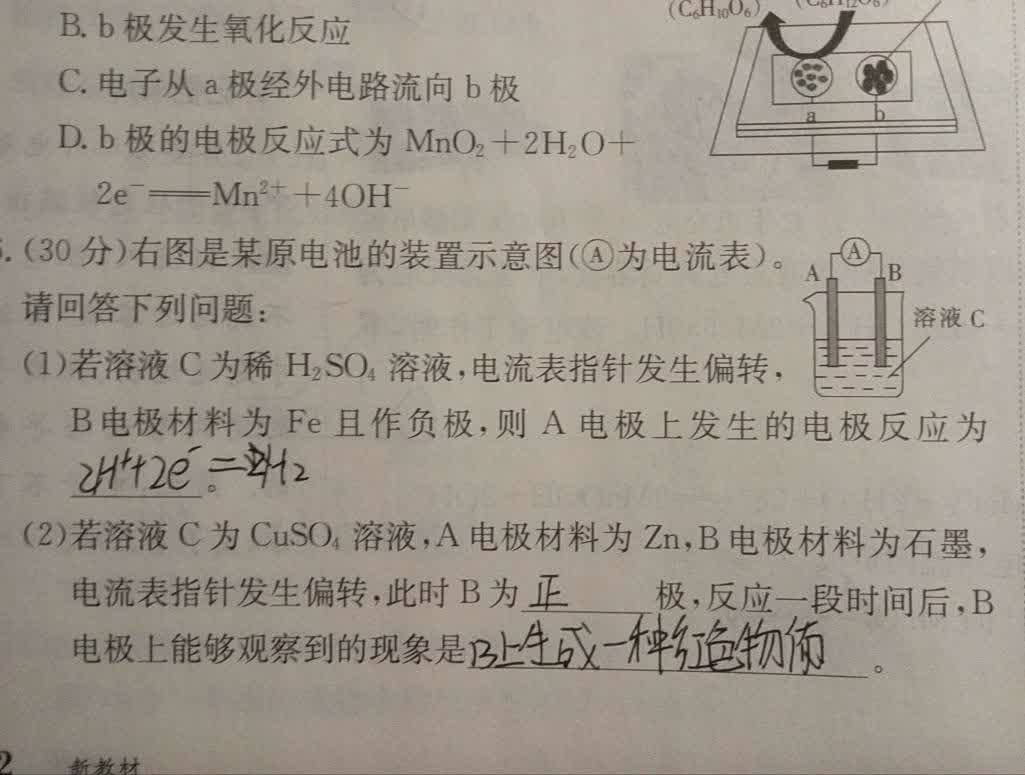 (C₆H₁₀O₆)
B. b极发生氧化反应
C. 电子从a极经外电路流向b极
D. b极的电极反应式为 MnO₂+2H₂O+
2e⁻══Mn²⁺+4OH⁻
a b
(30分)右图是某原电池的装置示意图(Ⓐ为电流表)。
请回答下列问题:
A Ⓐ B
溶液C
(1)若溶液C为稀 H₂SO₄ 溶液,电流表指针发生偏转,
B电极材料为 Fe 且作负极,则 A 电极上发生的电极反应为
2H⁺+2e⁻=H₂。
(2)若溶液C为CuSO₄溶液,A电极材料为Zn,B电极材料为石墨,
电流表指针发生偏转,此时B为正极,反应一段时间后,B
电极上能够观察到的现象是B上生成一种红色物质。
2 新教材